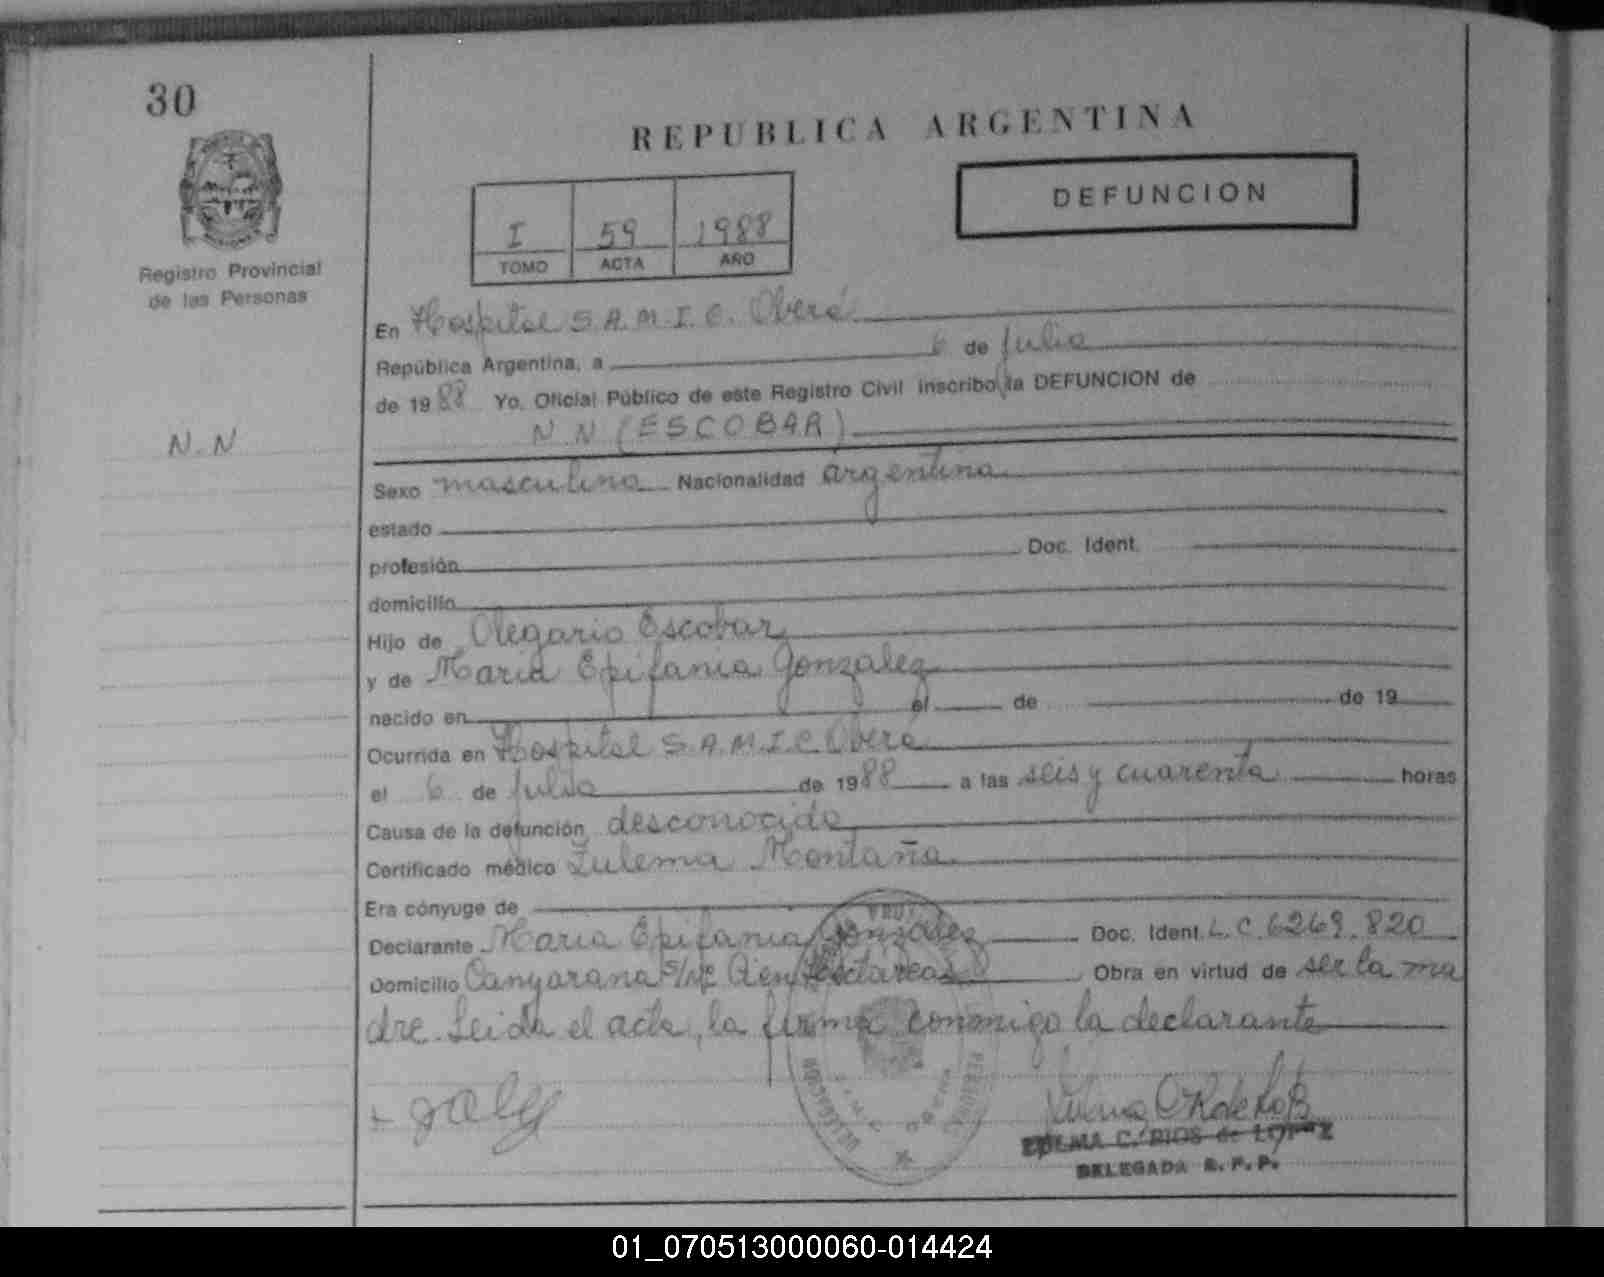 30
REPUBLICA ARGENTINA
DEFUNCION
I 59 1988
TOMO ACTA AÑO
Registro Provincial
de las Personas
En Hospital S.A.M.I.C. Oberá
República Argentina, a 6 de julio
de 1988 Yo, Oficial Público de este Registro Civil inscribo la DEFUNCION de
N.N
N N (ESCOBAR)
Sexo masculino Nacionalidad argentina
estado
profesión Doc. Ident.
domicilio
Hijo de Olegario Escobar
y de Maria Epifania Gonzalez
nacido en el de de 19
Ocurrida en Hospital S.A.M.I.C Oberá
el 6 de julio de 1988 a las seis y cuarenta horas
Causa de la defunción desconocida
Certificado médico Zulema Montaña
Era cónyuge de
Declarante Maria Epifania Gonzalez Doc. Ident. L.C. 6269.820
Domicilio S/Nº Cien Hectareas Obra en virtud de ser la ma
dre. Leida el acta, la firma conmigo la declarante
DELEGACION
C. RIOS de LOPEZ
DELEGADA R. P. P.
01_070513000060-014424